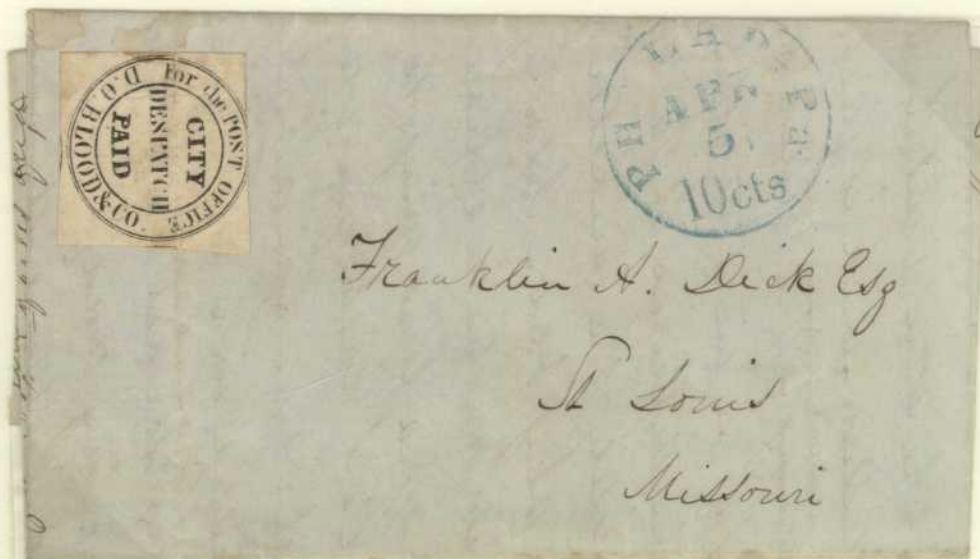 D.O. BLOOD & CO.'
For the POST OFFICE
CITY
DESPATCH
PAID
APR
5
10cts
Franklin A. Dick Esq
St Louis
Missouri